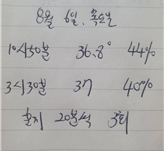 8월 6일. 목요일
10시30분 36.8° 44%
3시30분 37 40%
환기 20분씩 3회